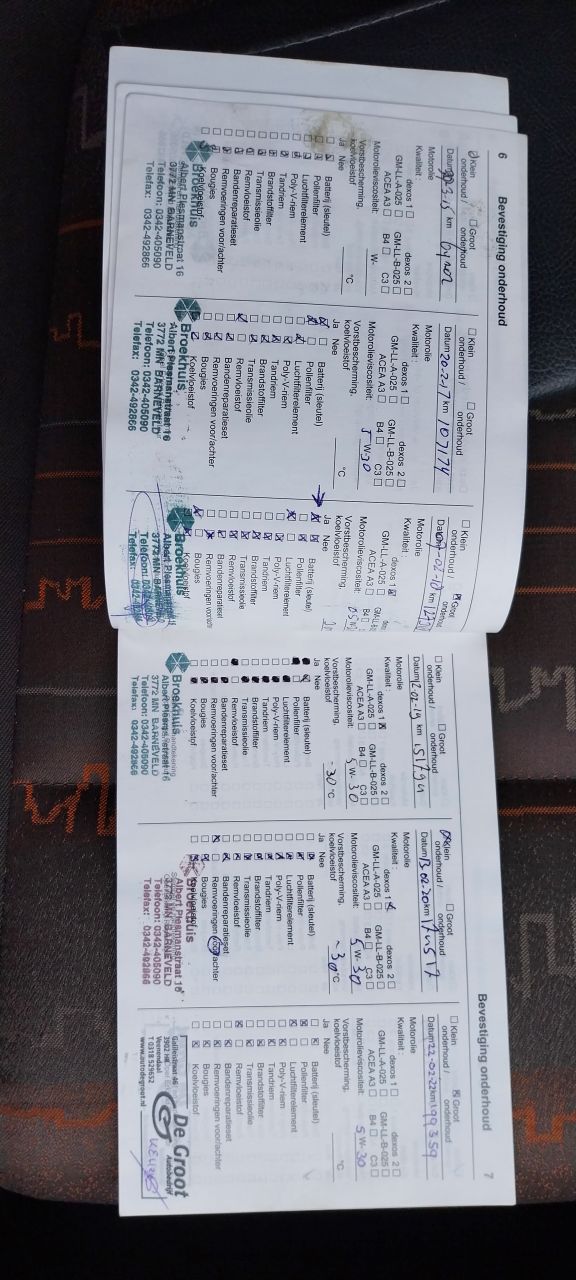 6
Bevestiging onderhoud
Klein onderhoud / Groot onderhoud
Datum km
Motorolie
Kwaliteit: dexos 1 dexos 2
GM-LL-A-025 GM-LL-B-025
ACEA A3 B4 C3
Motorolieviscositeit: W-
Vorstbescherming, koelvloeistof °C
Ja Nee
Batterij (sleutel)
Pollenfilter
Luchtfilterelement
Poly-V-riem
Tandriem
Brandstoffilter
Transmissieolie
Remvloeistof
Bandenreparatieset
Remvoeringen voor/achter
Bougies
Koelvloeistof
Broekhuis
Albert Plesmanstraat 16
3772 MN BARNEVELD
Telefoon: 0342-405090
Telefax: 0342-492866
Klein onderhoud / Groot onderhoud
Datum 20-2-17 km 107174
Motorolie
Kwaliteit: dexos 1 dexos 2
GM-LL-A-025 GM-LL-B-025
ACEA A3 B4 C3
Motorolieviscositeit: 5 W-30
Vorstbescherming, koelvloeistof °C
Ja Nee
Batterij (sleutel)
Pollenfilter
Luchtfilterelement
Poly-V-riem
Tandriem
Brandstoffilter
Transmissieolie
Remvloeistof
Bandenreparatieset
Remvoeringen voor/achter
Bougies
Koelvloeistof
Broekhuis
Albert Plesmanstraat 16
3772 MN BARNEVELD
Telefoon: 0342-405090
Telefax: 0342-492866
Klein onderhoud / Groot
Datum km
Motorolie
Kwaliteit: dexos 1
GM-LL-A-025
ACEA A3 B4
Motorolieviscositeit:
Vorstbescherming, koelvloeistof
Ja Nee
Batterij (sleutel)
Pollenfilter
Luchtfilterelement
Poly-V-riem
Tandriem
Brandstoffilter
Transmissieolie
Remvloeistof
Bandenreparatieset
Remvoeringen
Bougies
Koelvloeistof
Broekhuis
3772 MN BARNEVELD
Telefoon:
Telefax:
Bevestiging onderhoud
7
Klein onderhoud / Groot onderhoud
Datum km 151794
Motorolie
Kwaliteit: dexos 1 dexos 2
GM-LL-A-025 GM-LL-B-025
ACEA A3 B4 C3
Motorolieviscositeit: 5 W-30
Vorstbescherming, koelvloeistof -30 °C
Ja Nee
Batterij (sleutel)
Pollenfilter
Luchtfilterelement
Poly-V-riem
Tandriem
Brandstoffilter
Transmissieolie
Remvloeistof
Bandenreparatieset
Remvoeringen voor/achter
Bougies
Koelvloeistof
Broekhuis
Albert Plesmanstraat 16
3772 MN BARNEVELD
Telefoon: 0342-405090
Telefax: 0342-492866
Klein onderhoud / Groot onderhoud
Datum 13-02-20 km
Motorolie
Kwaliteit: dexos 1 dexos 2
GM-LL-A-025 GM-LL-B-025
ACEA A3 B4 C3
Motorolieviscositeit: 5 W-30
Vorstbescherming, koelvloeistof -30 °C
Ja Nee
Batterij (sleutel)
Pollenfilter
Luchtfilterelement
Poly-V-riem
Tandriem
Brandstoffilter
Transmissieolie
Remvloeistof
Bandenreparatieset
Remvoeringen voor/achter
Bougies
Broekhuis
Albert Plesmanstraat 16
3772 MN BARNEVELD
Telefoon: 0342-405090
Telefax: 0342-492866
Klein onderhoud / Groot onderhoud
Datum 22-02-22 km 199359
Motorolie
Kwaliteit: dexos 1 dexos 2
GM-LL-A-025 GM-LL-B-025
ACEA A3 B4 C3
Motorolieviscositeit: 5 W-30
Vorstbescherming, koelvloeistof °C
Ja Nee
Batterij (sleutel)
Pollenfilter
Luchtfilterelement
Poly-V-riem
Tandriem
Brandstoffilter
Transmissieolie
Remvloeistof
Bandenreparatieset
Remvoeringen voor/achter
Bougies
Koelvloeistof
De Groot
Autobedrijf
Veenendaal
T 0318 529652
www.autodegroot.nl